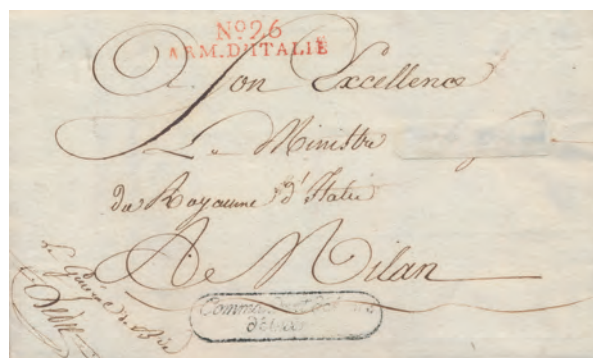 Nº 26
ARM. D'ITALIE
A Son Excellence
Le Ministre
du Royaume d'Italie
A Milan
Le Général de B.de